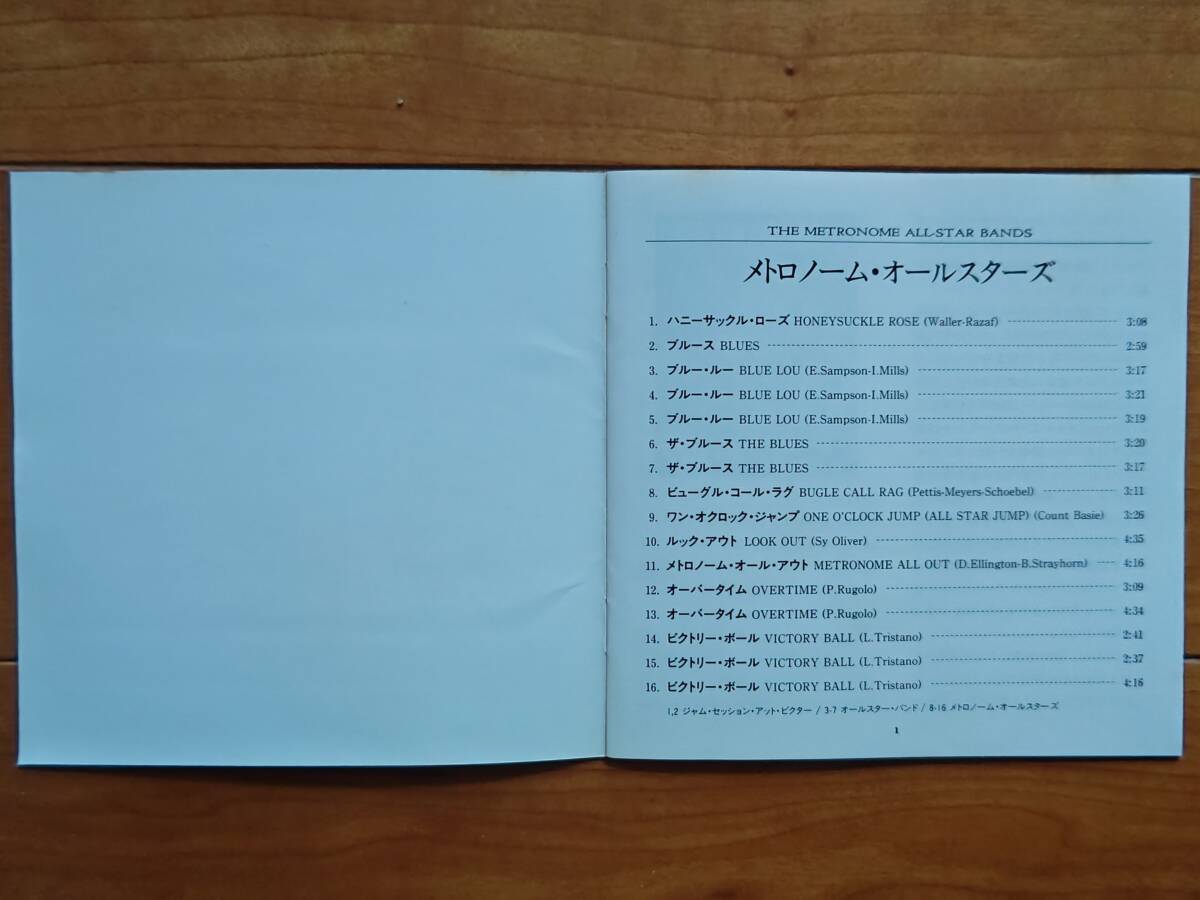 THE METRONOME ALL-STAR BANDS
メトロノーム・オールスターズ
1. ハニーサックル・ローズ HONEYSUCKLE ROSE (Waller-Razaf) 3:08
2. ブルース BLUES 2:59
3. ブルー・ルー BLUE LOU (E.Sampson-I.Mills) 3:17
4. ブルー・ルー BLUE LOU (E.Sampson-I.Mills) 3:21
5. ブルー・ルー BLUE LOU (E.Sampson-I.Mills) 3:19
6. ザ・ブルース THE BLUES 3:20
7. ザ・ブルース THE BLUES 3:17
8. ビューグル・コール・ラグ BUGLE CALL RAG (Pettis-Meyers-Schoebel) 3:11
9. ワン・オクロック・ジャンプ ONE O'CLOCK JUMP (ALL STAR JUMP) (Count Basie) 3:26
10. ルック・アウト LOOK OUT (Sy Oliver) 4:35
11. メトロノーム・オール・アウト METRONOME ALL OUT (D.Ellington-B.Strayhorn) 4:16
12. オーバータイム OVERTIME (P.Rugolo) 3:09
13. オーバータイム OVERTIME (P.Rugolo) 4:34
14. ビクトリー・ボール VICTORY BALL (L.Tristano) 2:41
15. ビクトリー・ボール VICTORY BALL (L.Tristano) 2:37
16. ビクトリー・ボール VICTORY BALL (L.Tristano) 4:16
1,2 ジャム・セッション・アット・ビクター / 3-7 オールスター・バンド / 8-16 メトロノーム・オールスターズ
1